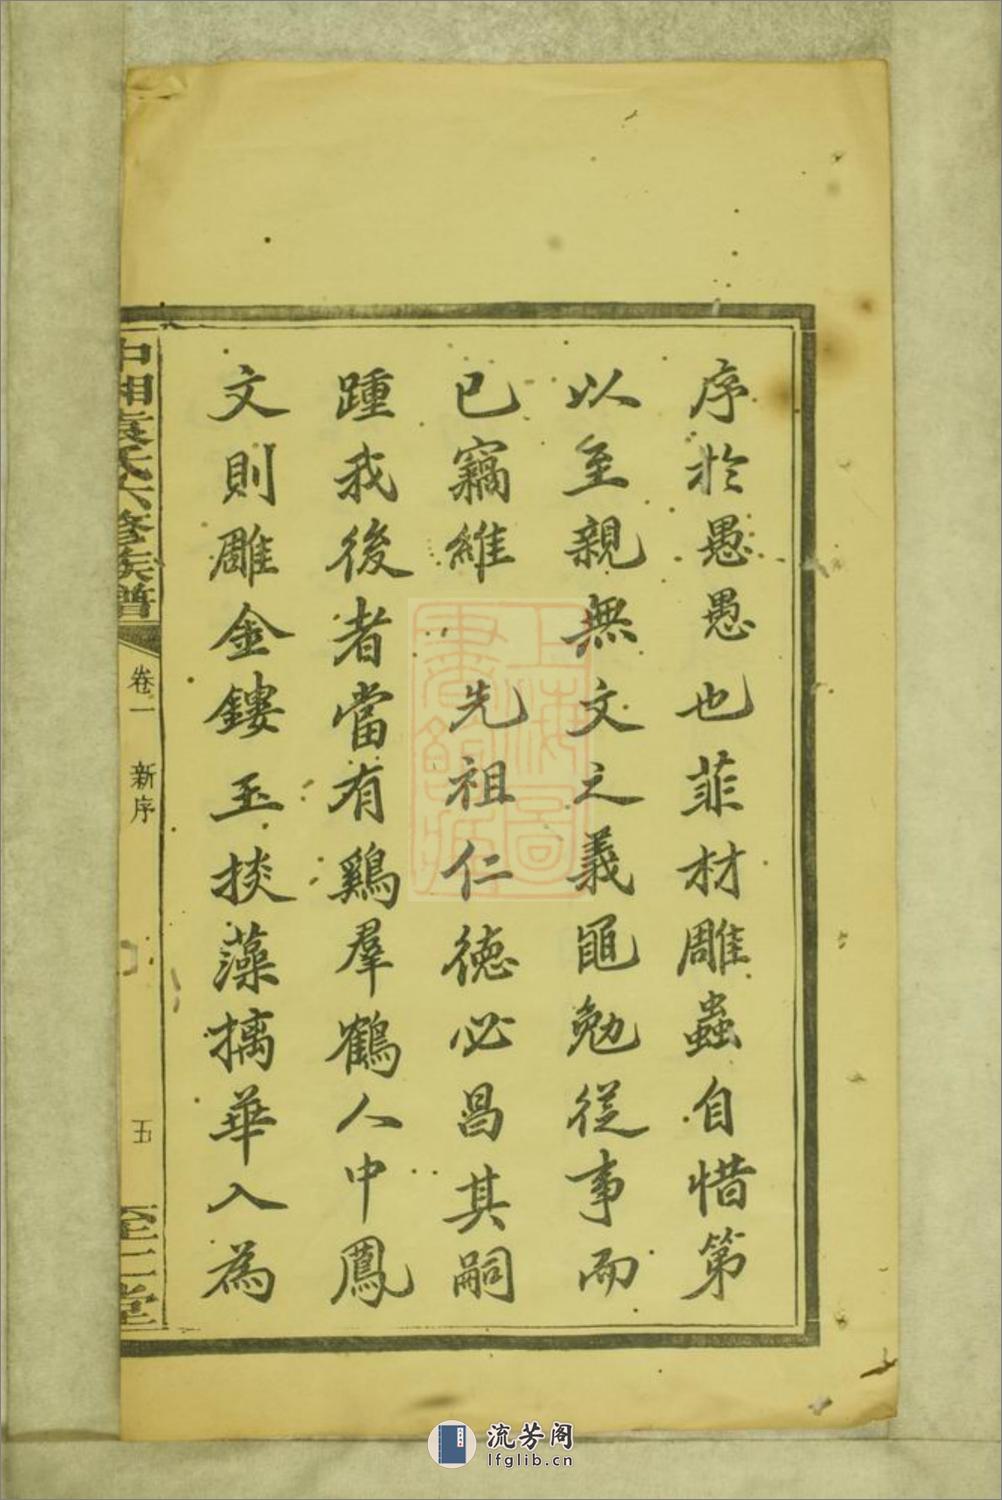 序於愚愚也菲材雕蟲自惜第
以至親無文之義黽勉從事而
已竊維先祖仁德必昌其嗣
踵我後者當有鷄羣鶴人中鳳
文則雕金鏤玉掞藻摛華入為
中湘袁氏六修族譜
卷一 新序
五
至仁堂
上海圖書館藏
流芳阁
lfglib.cn